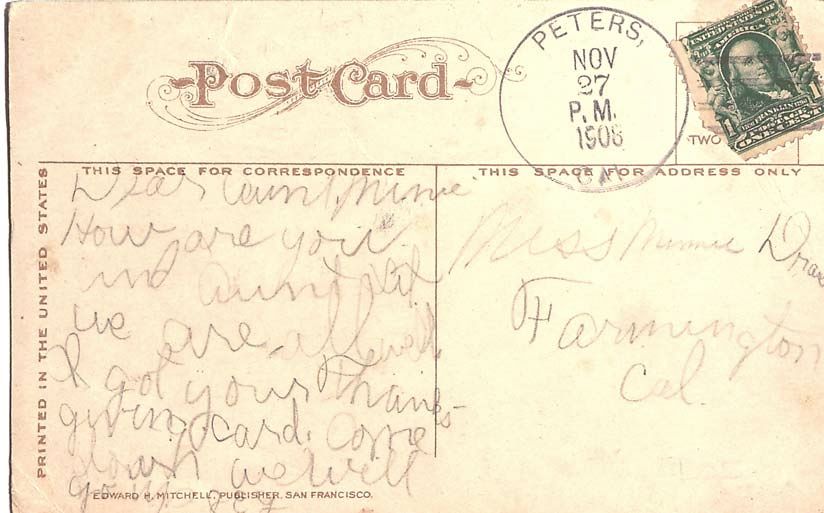 Post Card
PETERS,
NOV
27
P.M.
1908
CAL
UNITED STATES OF
AMERICA
1 FRANKLIN 1
POSTAGE
ONE CENT
TWO
THIS SPACE FOR CORRESPONDENCE
THIS SPACE FOR ADDRESS ONLY
PRINTED IN THE UNITED STATES
Dear Aunt Minnie
How are you
and aunt
we are all well
I got your Thanks-
giving card. Come
down we will
go
Miss Minnie
Farmington
Cal.
EDWARD H. MITCHELL, PUBLISHER, SAN FRANCISCO.